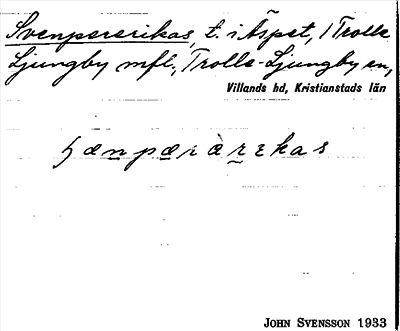 Svenpererikas, t. i Äspet, 1 Trolle
Ljungby mfl., Trolle-Ljungby sn,
Villands hd, Kristianstads län
JOHN SVENSSON 1933